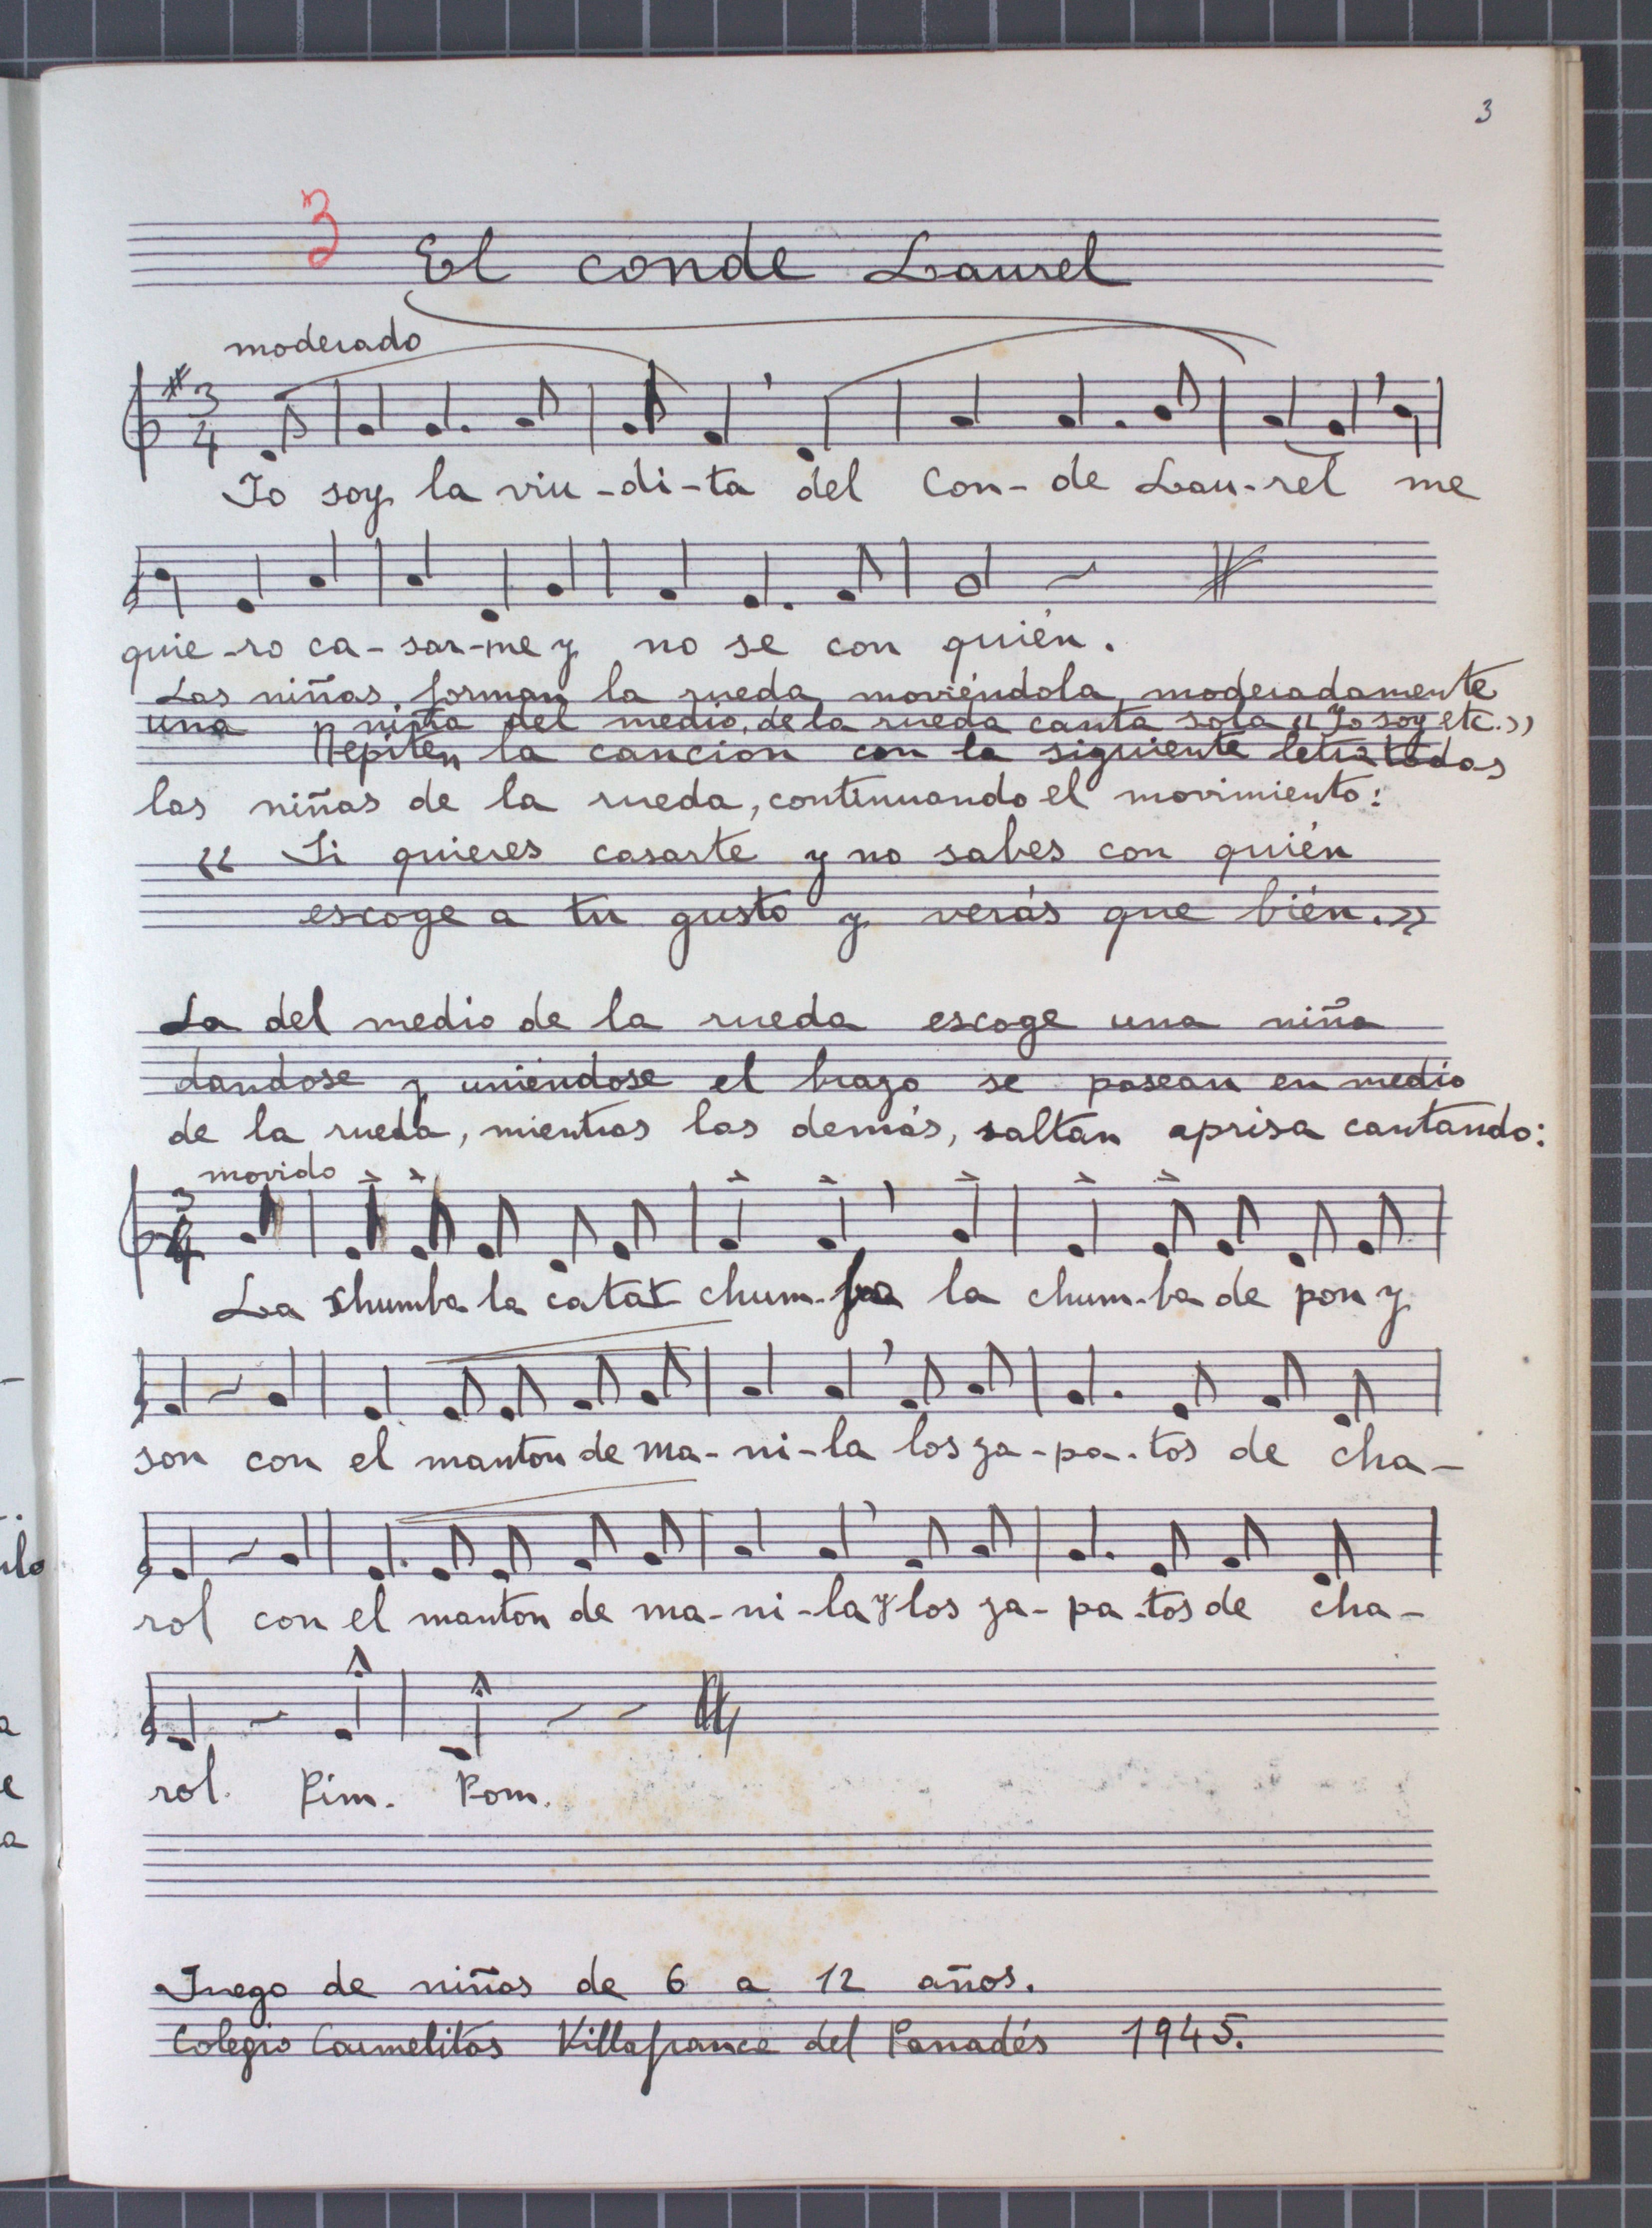 3
3
El conde Laurel
moderado
3
4
Yo soy la viu-di-ta del Con-de Lau-rel me
quie-ro ca-sar-me y no se con quién.
Las niñas forman la rueda moviéndola moderadamente
una niña del medio de la rueda canta sola «Yo soy etc.»
Repiten la cancion con la siguiente letra todas
las niñas de la rueda, continuando el movimiento:
« Si quieres casarte y no sabes con quién
escoge a tu gusto y verás que bién.»
La del medio de la rueda escoge una niña
dandose y uniendose el brazo se pasean en medio
de la rueda, mientras las demás, saltan aprisa cantando:
movido
3
4
La chumba la catat chum-ba la chum-ba de pon y
son con el manton de ma-ni-la los za-pa-tos de cha-
rol con el manton de ma-ni-la y los za-pa-tos de cha-
rol. Pim. Pom.
Juego de niñas de 6 a 12 años.
Colegio Carmelitas Villafranca del Panadés 1945.